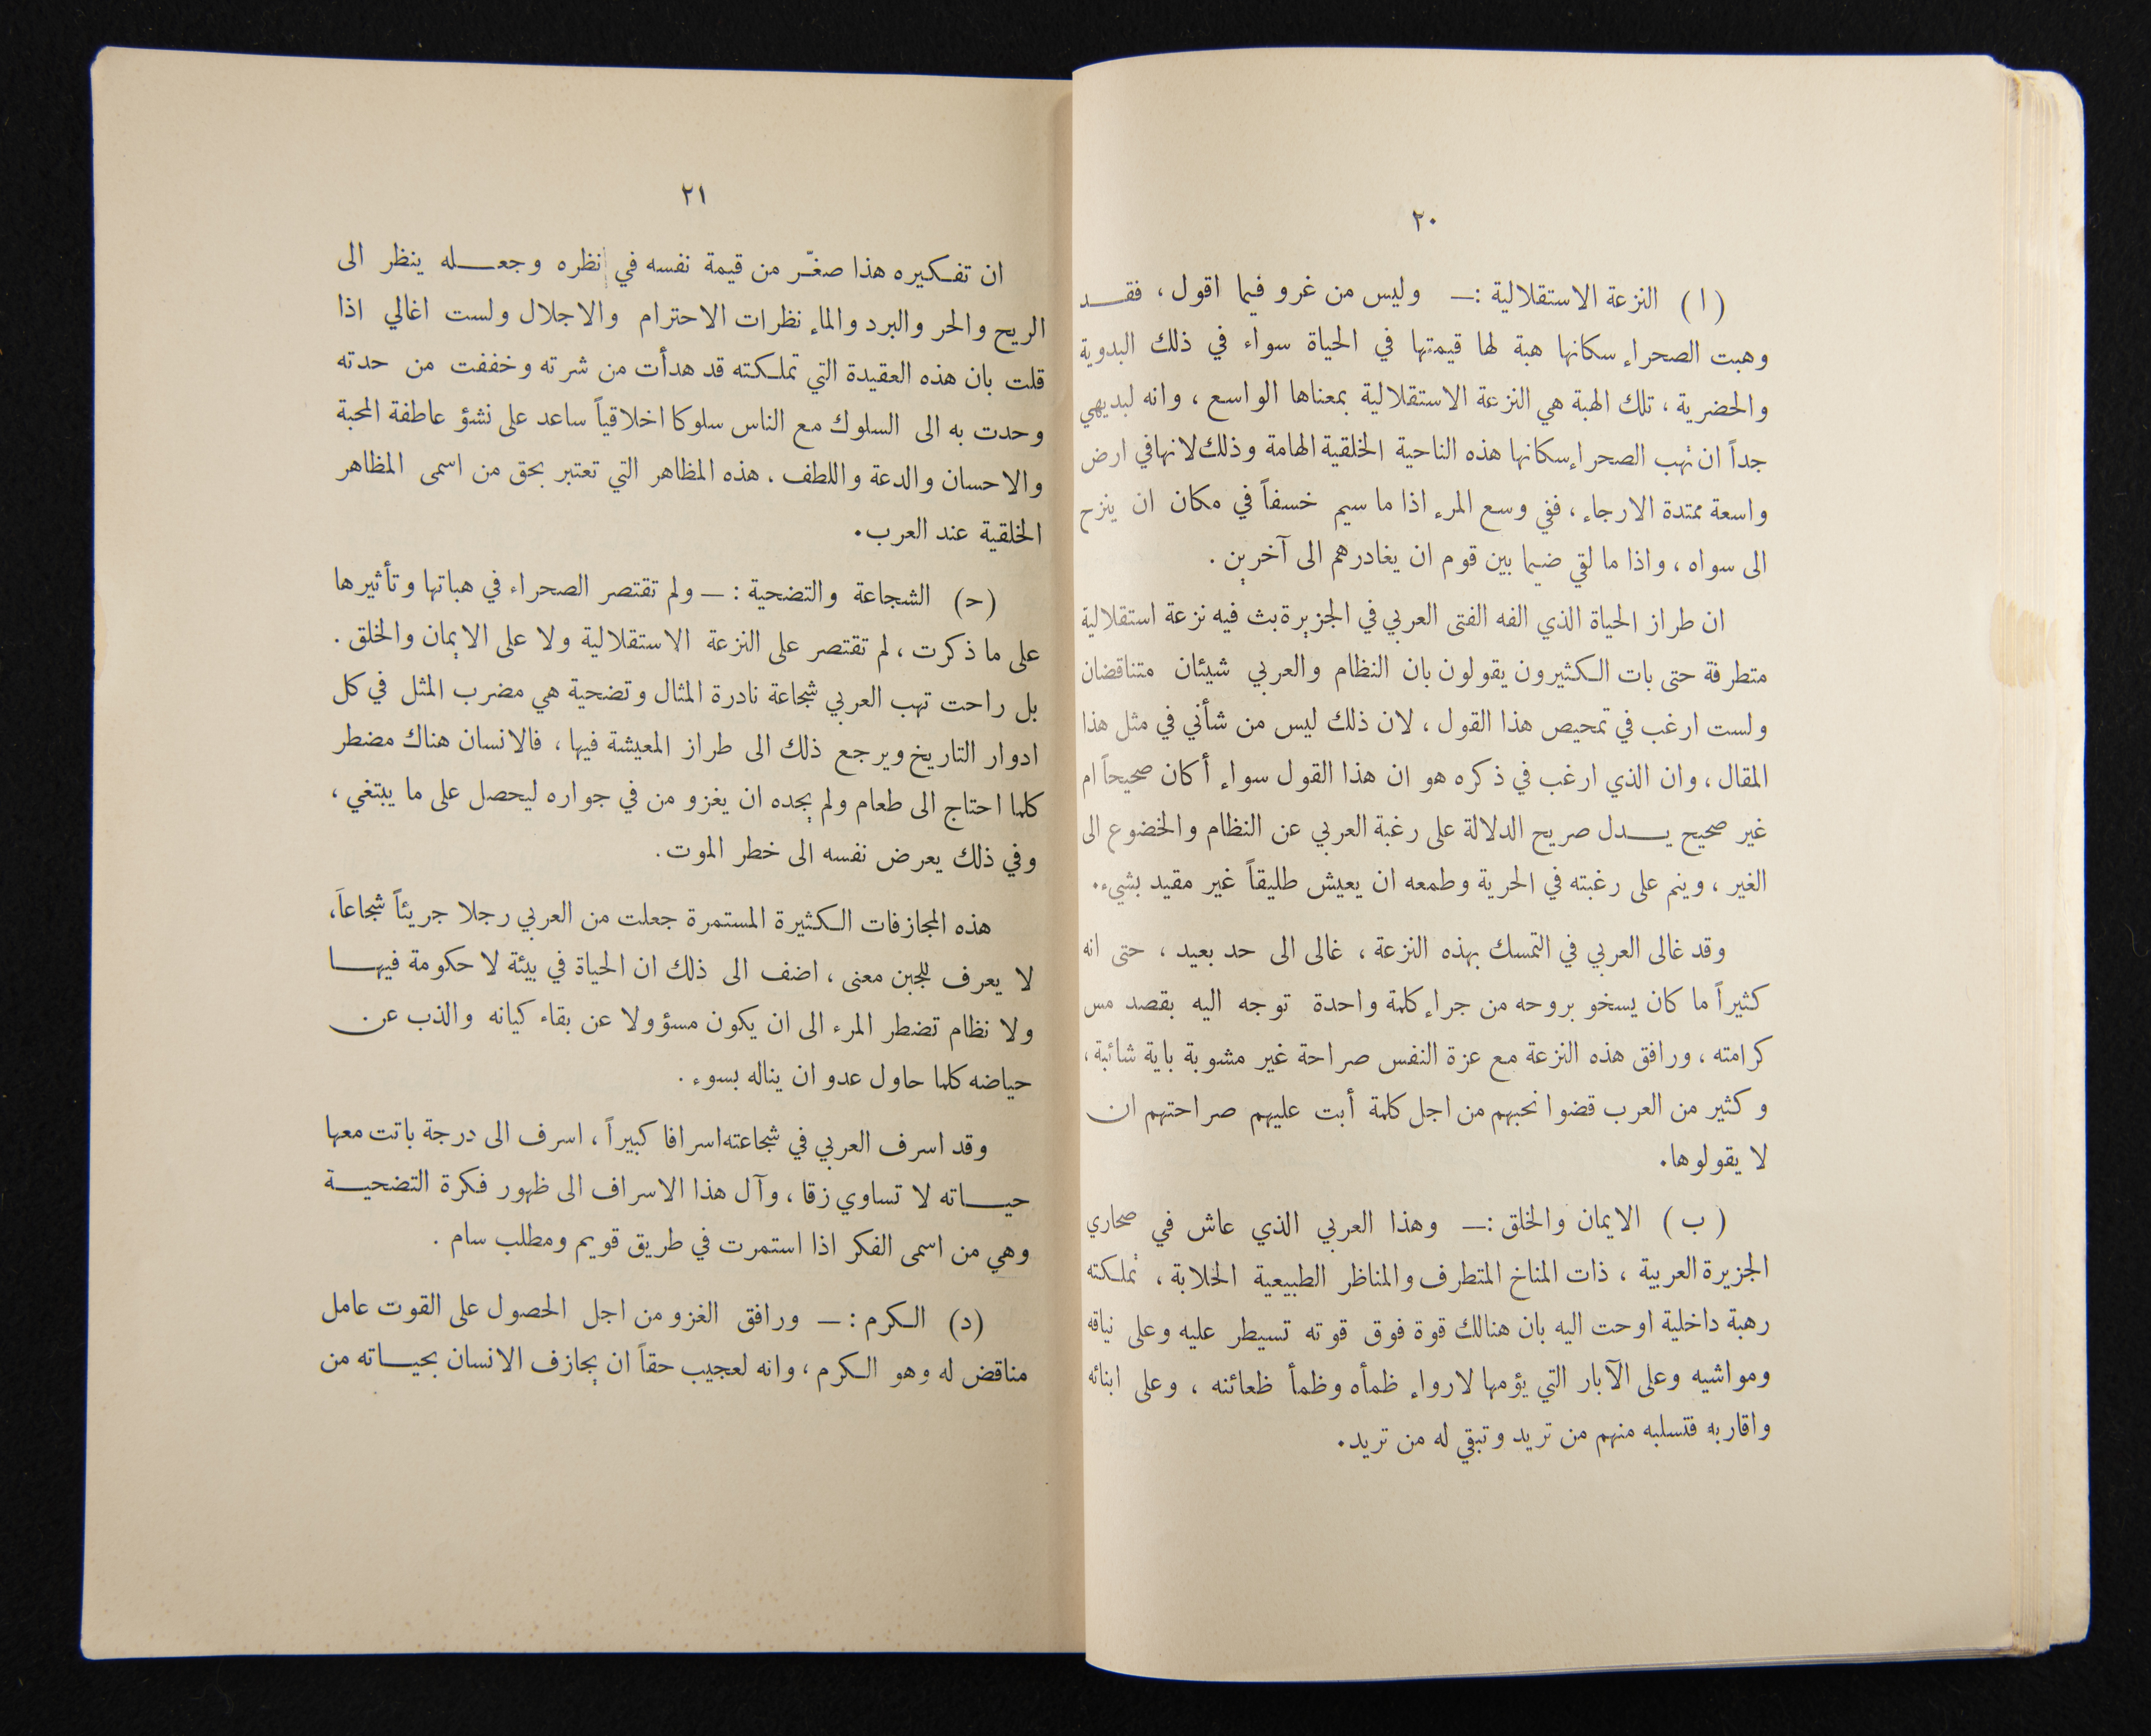 ٢٠
( ا ) النزعة الاستقلالية :— وليس من غرو فيما اقول ، فقد
وهبت الصحراء سكانها هبة لها قيمتها في الحياة سواء في ذلك البدوية
والحضرية ، تلك الهبة هي النزعة الاستقلالية بمعناها الواسع ، وانه لبديهي
جداً ان تهب الصحراء سكانها هذه الناحية الخلقية الهامة وذلك لانها في ارض
واسعة ممتدة الارجاء ، ففي وسع المرء اذا ما سيم خسفاً في مكان ان ينزح
الى سواه ، واذا ما لقي ضيما بين قوم ان يغادرهم الى آخرين .
ان طراز الحياة الذي الفه الفتى العربي في الجزيرة بث فيه نزعة استقلالية
متطرفة حتى بات الكثيرون يقولون بان النظام والعربي شيئان متناقضان
ولست ارغب في تمحيص هذا القول ، لان ذلك ليس من شأني في مثل هذا
المقال ، وان الذي ارغب في ذكره هو ان هذا القول سواء أكان صحيحاً ام
غير صحيح يدل صريح الدلالة على رغبة العربي عن النظام والخضوع الى
الغير ، وينم على رغبته في الحرية وطمعه ان يعيش طليقاً غير مقيد بشيء .
وقد غالى العربي في التمسك بهذه النزعة ، غالى الى حد بعيد ، حتى انه
كثيراً ما كان يسخو بروحه من جراء كلمة واحدة توجه اليه بقصد مس
كرامته ، ورافق هذه النزعة مع عزة النفس صراحة غير مشوبة باية شائبة ،
وكثير من العرب قضوا نحبهم من اجل كلمة أبت عليهم صراحتهم ان
لا يقولوها .
( ب ) الايمان والخلق :— وهذا العربي الذي عاش في صحاري
الجزيرة العربية ، ذات المناخ المتطرف والمناظر الطبيعية الخلابة ، تملكته
رهبة داخلية اوحت اليه بان هنالك قوة فوق قوته تسيطر عليه وعلى نياقه
ومواشيه وعلى الآبار التي يؤمها لارواء ظمأه وظمأ ظعائنه ، وعلى ابنائه
واقاربه فتسلبه منهم من تريد وتبقي له من تريد .
٢١
ان تفكيره هذا صغّر من قيمة نفسه في نظره وجعله ينظر الى
الريح والحر والبرد والماء نظرات الاحترام والاجلال ولست اغالي اذا
قلت بان هذه العقيدة التي تملكته قد هدأت من شرته وخففت من حدته
وحدت به الى السلوك مع الناس سلوكا اخلاقياً ساعد على نشؤ عاطفة المحبة
والاحسان والدعة واللطف . هذه المظاهر التي تعتبر بحق من اسمى المظاهر
الخلقية عند العرب .
(ح) الشجاعة والتضحية : — ولم تقتصر الصحراء في هباتها وتأثيرها
على ما ذكرت ، لم تقتصر على النزعة الاستقلالية ولا على الايمان والخلق .
بل راحت تهب العربي شجاعة نادرة المثال وتضحية هي مضرب المثل في كل
ادوار التاريخ ويرجع ذلك الى طراز المعيشة فيها ، فالانسان هناك مضطر
كلما احتاج الى طعام ولم يجده ان يغزو من في جواره ليحصل على ما يبتغي ،
وفي ذلك يعرض نفسه الى خطر الموت .
هذه المجازفات الكثيرة المستمرة جعلت من العربي رجلا جريئاً شجاعاً ،
لا يعرف للجبن معنى ، اضف الى ذلك ان الحياة في بيئة لا حكومة فيها
ولا نظام تضطر المرء الى ان يكون مسؤولا عن بقاء كيانه والذب عن
حياضه كلما حاول عدو ان يناله بسوء .
وقد اسرف العربي في شجاعته اسرافا كبيراً ، اسرف الى درجة باتت معها
حياته لا تساوي زقا ، وآل هذا الاسراف الى ظهور فكرة التضحية
وهي من اسمى الفكر اذا استمرت في طريق قويم ومطلب سام .
(د) الكرم : — ورافق الغزو من اجل الحصول على القوت عامل
مناقض له وهو الكرم ، وانه لعجيب حقاً ان يجازف الانسان بحياته من